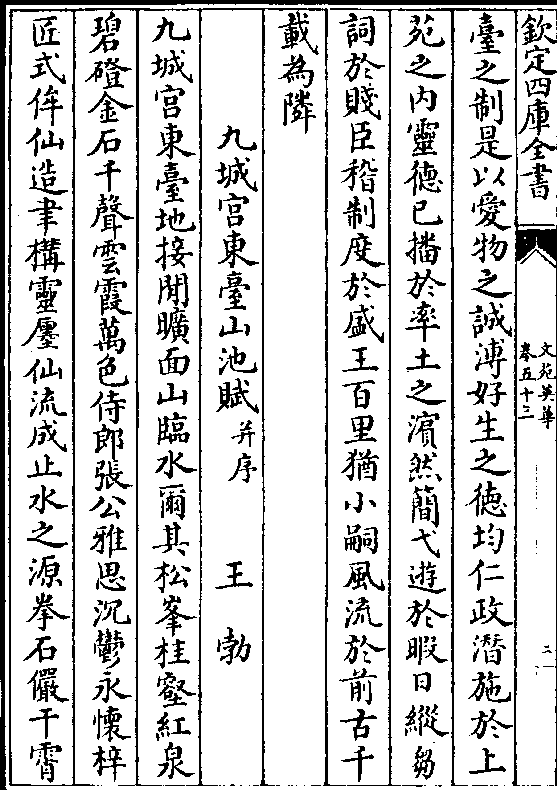 欽定四庫全書
文苑英華
卷五十三
二
臺之制是以愛物之誠溥好生之徳均仁政潜施於上
苑之内靈徳已播於率土之濵然簡弋遊於暇日縱芻
詞於賤臣稽制度於盛王百里猶小嗣風流於前古千
載為隣
九城宫東臺山池賦并序 王勃
九城宫東臺地接閒曠面山臨水爾其松峯桂壑紅泉
碧磴金石千聲雲霞萬色侍郎張公雅思沉鬱永懐梓
匠式侔仙造聿構靈廛仙流成止水之源拳石儼干霄